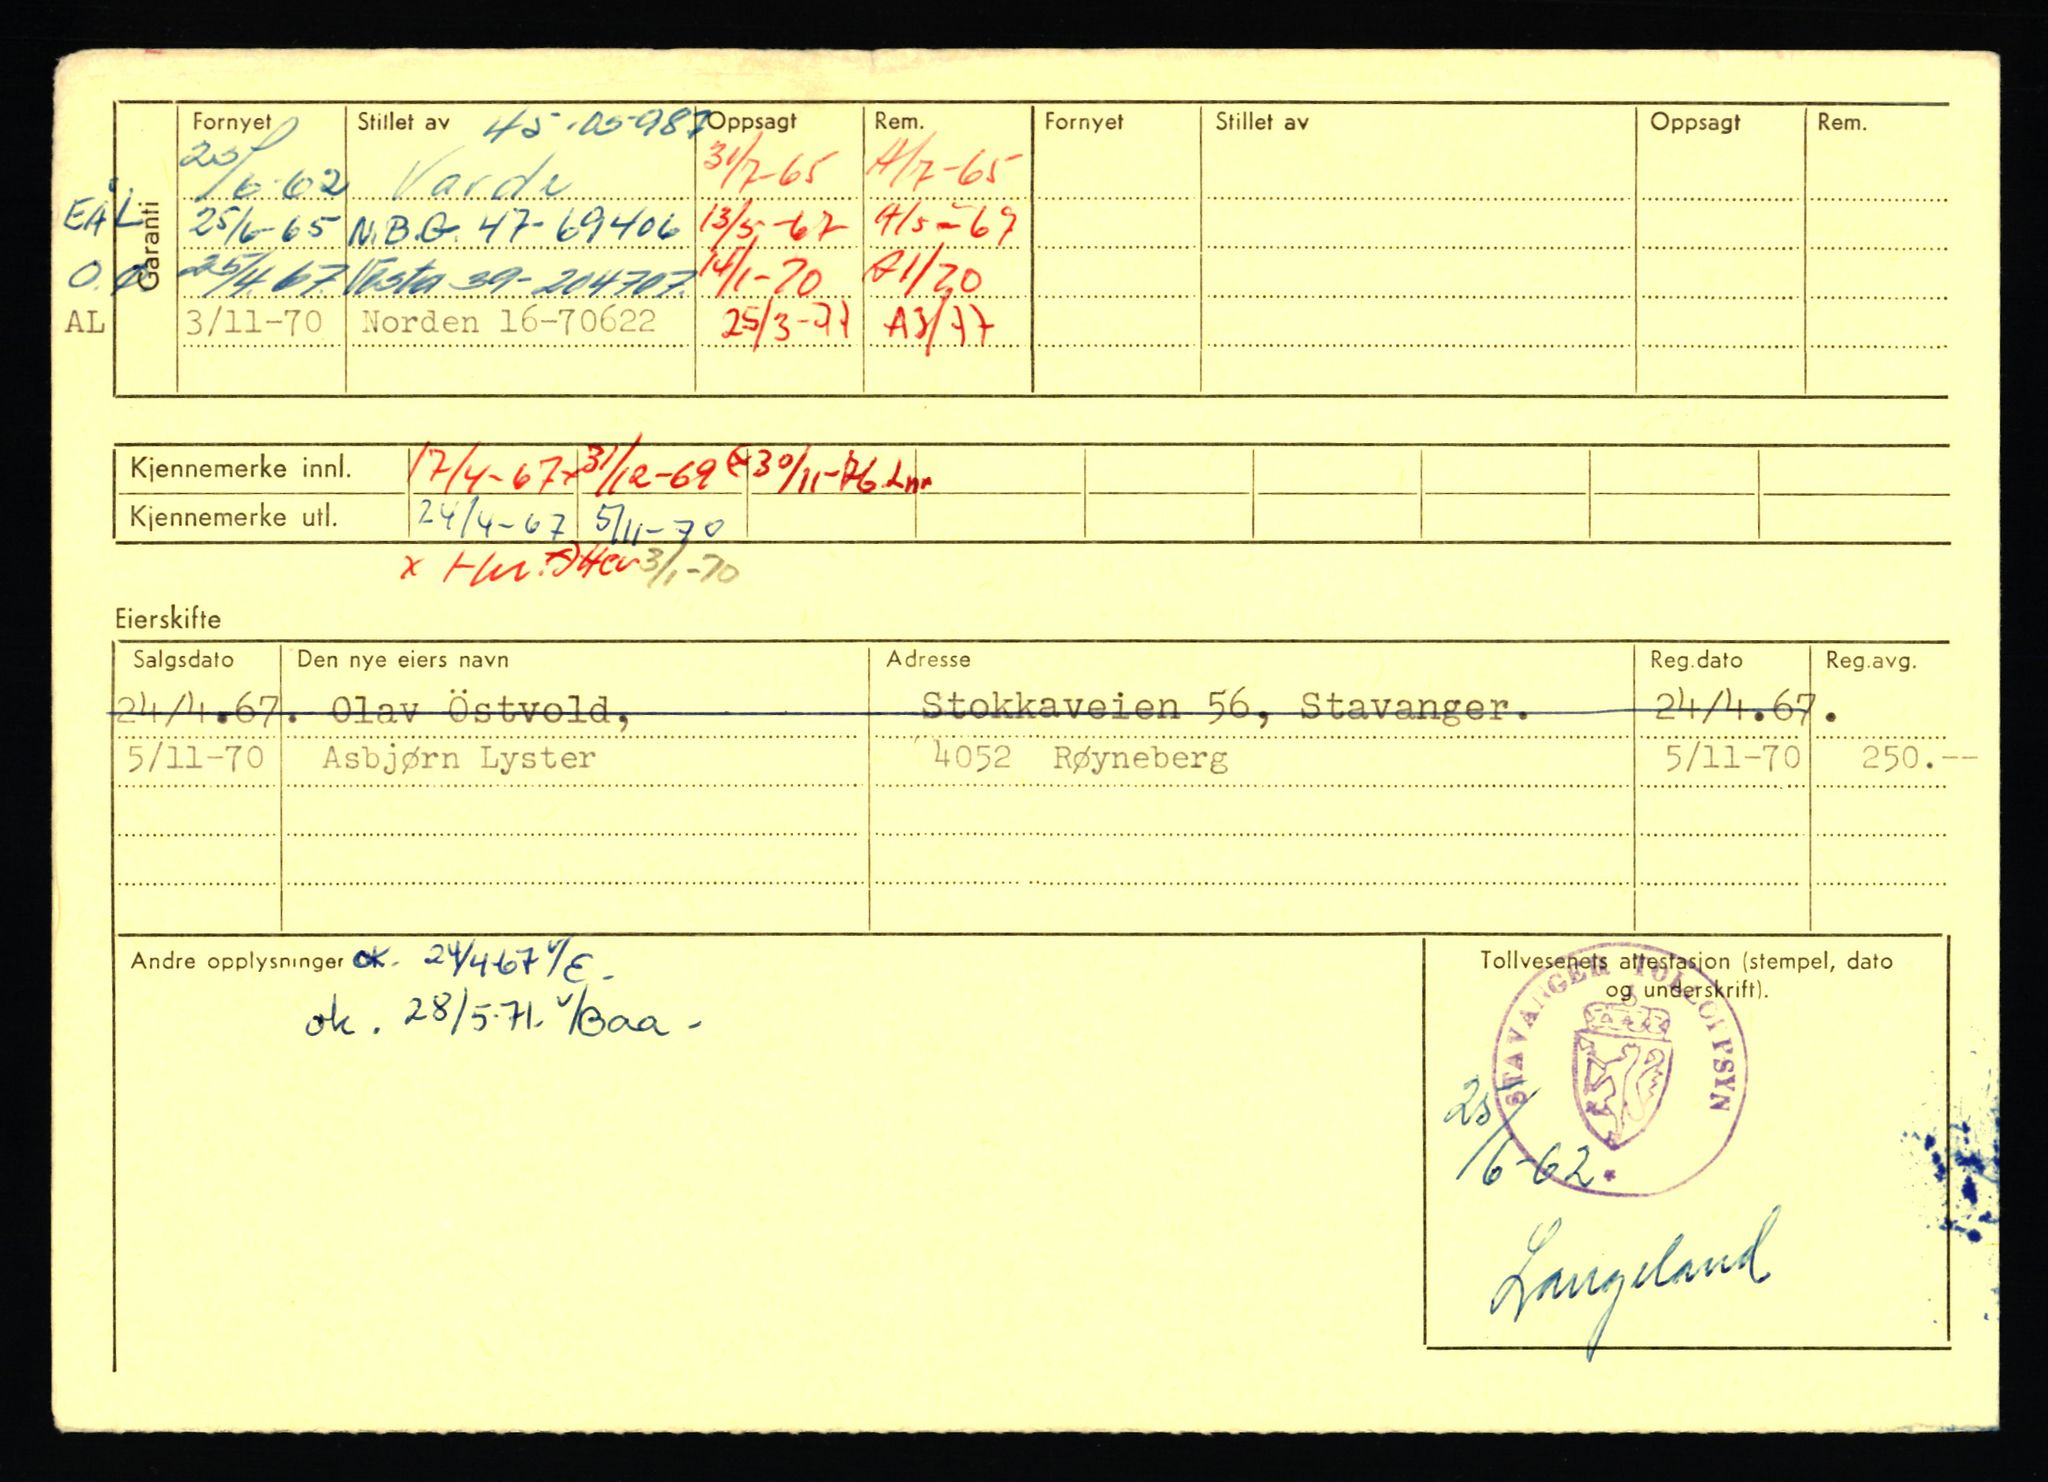 Fornyet Stillet av 45-05-987 Oppsagt Rem. Fornyet Stillet av Oppsagt Rem.
Garanti
25/6-62 Varde 31/7-65 A/7-65
EÅL 25/6-65 N.B.G. 47-69406 13/5-67 A/5-69
O.Ø 25/4.67. Vesta 39-204707. 14/1-70 A1/70
AL 3/11-70 Norden 16-70622 25/3-77 A3/77
Kjennemerke innl. 17/4-67x 31/12-69 30/11-76 Lnr
Kjennemerke utl. 24/4-67 5/11-70
x 3/1-70
Eierskifte
Salgsdato Den nye eiers navn Adresse Reg.dato Reg.avg.
24/4.67. Olav Östvold, Stokkaveien 56, Stavanger. 24/4.67.
5/11-70 Asbjørn Lyster 4052 Røyneberg 5/11-70 250.--
Andre opplysninger ok. 24/4-67 v/E.
ok. 28/5-71. v/Baa -
Tollvesenets attestasjon (stempel, dato
og underskrift).
STAVANGER TOLLOPPSYN
25/6-62
Langeland